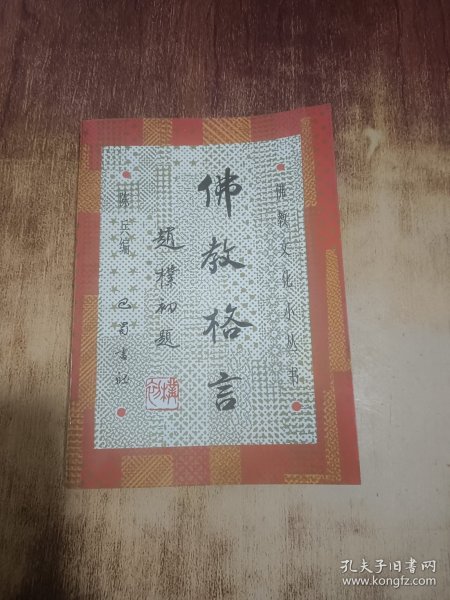 佛教文化小丛书
佛教格言
趙樸初題
樸初
陈兵编
巴蜀书社
孔夫子旧书网
www.kongfz.com